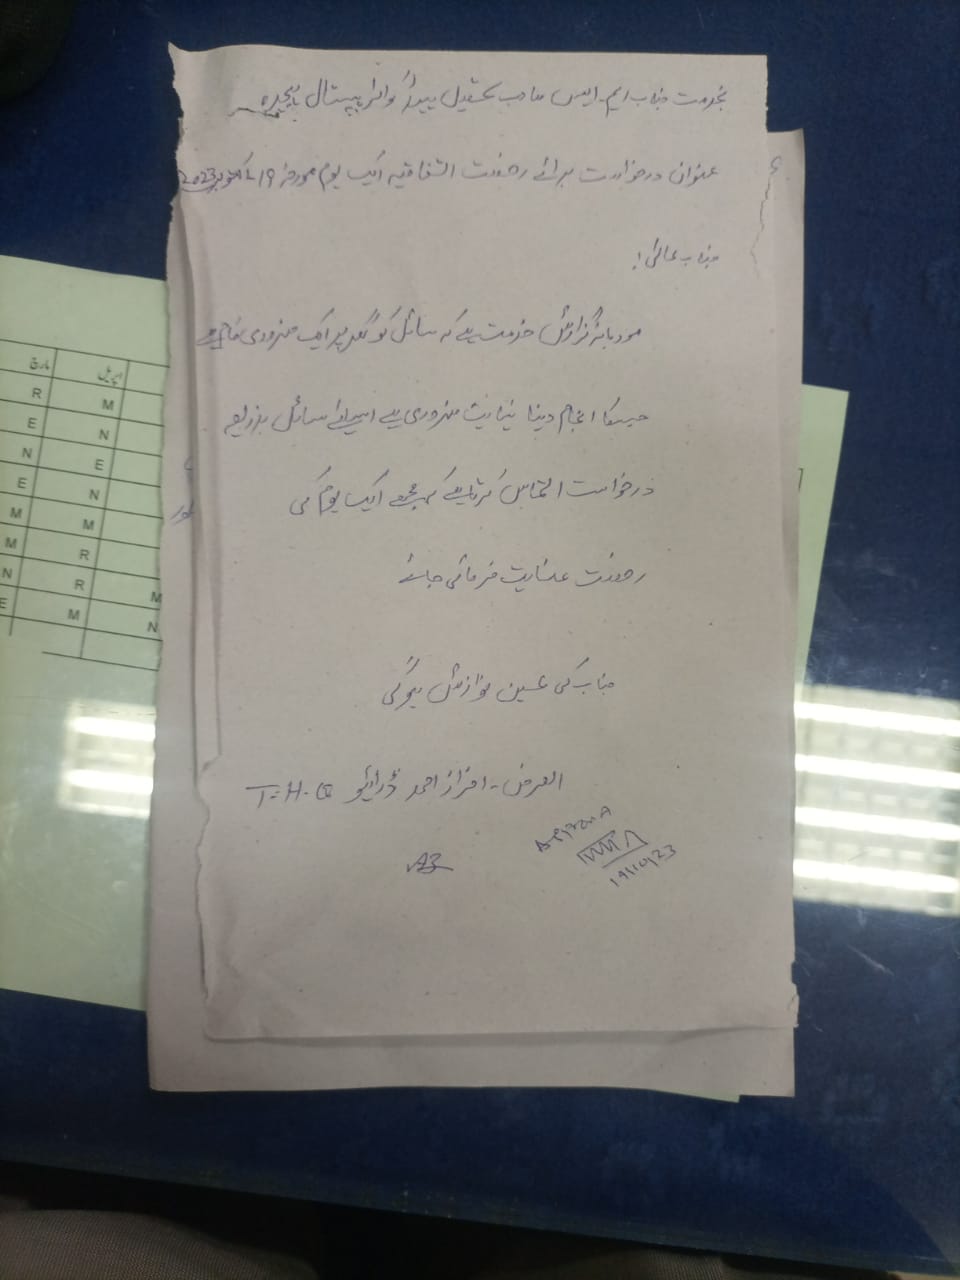 بخدمت جناب ایم۔ایس صاحب تحصیل ہیڈ کوارٹر ہسپتال
عنوان درخواست برائے رخصت اتفاقیہ ایک یوم مورخہ ۱۹ اکتوبر 2023
جناب عالی!
مودبانہ گزارش خدمت ہے کہ سائل کو گھر پر ایک ضروری کام ہے
جسکا انجام دینا نہایت ضروری ہے اسلئے سائل بذریعہ
درخواست التماس کرتا ہے کہ مجھے ایک یوم کی
رخصت عنایت فرمائی جائے
جناب کی عین نوازش ہوگی
العرض - افراز احمد ڈرائیور T.H.Q
19/10/23
مارچ اپریل
R M
E N
N E
E N
M M
M R
N R M
E M N